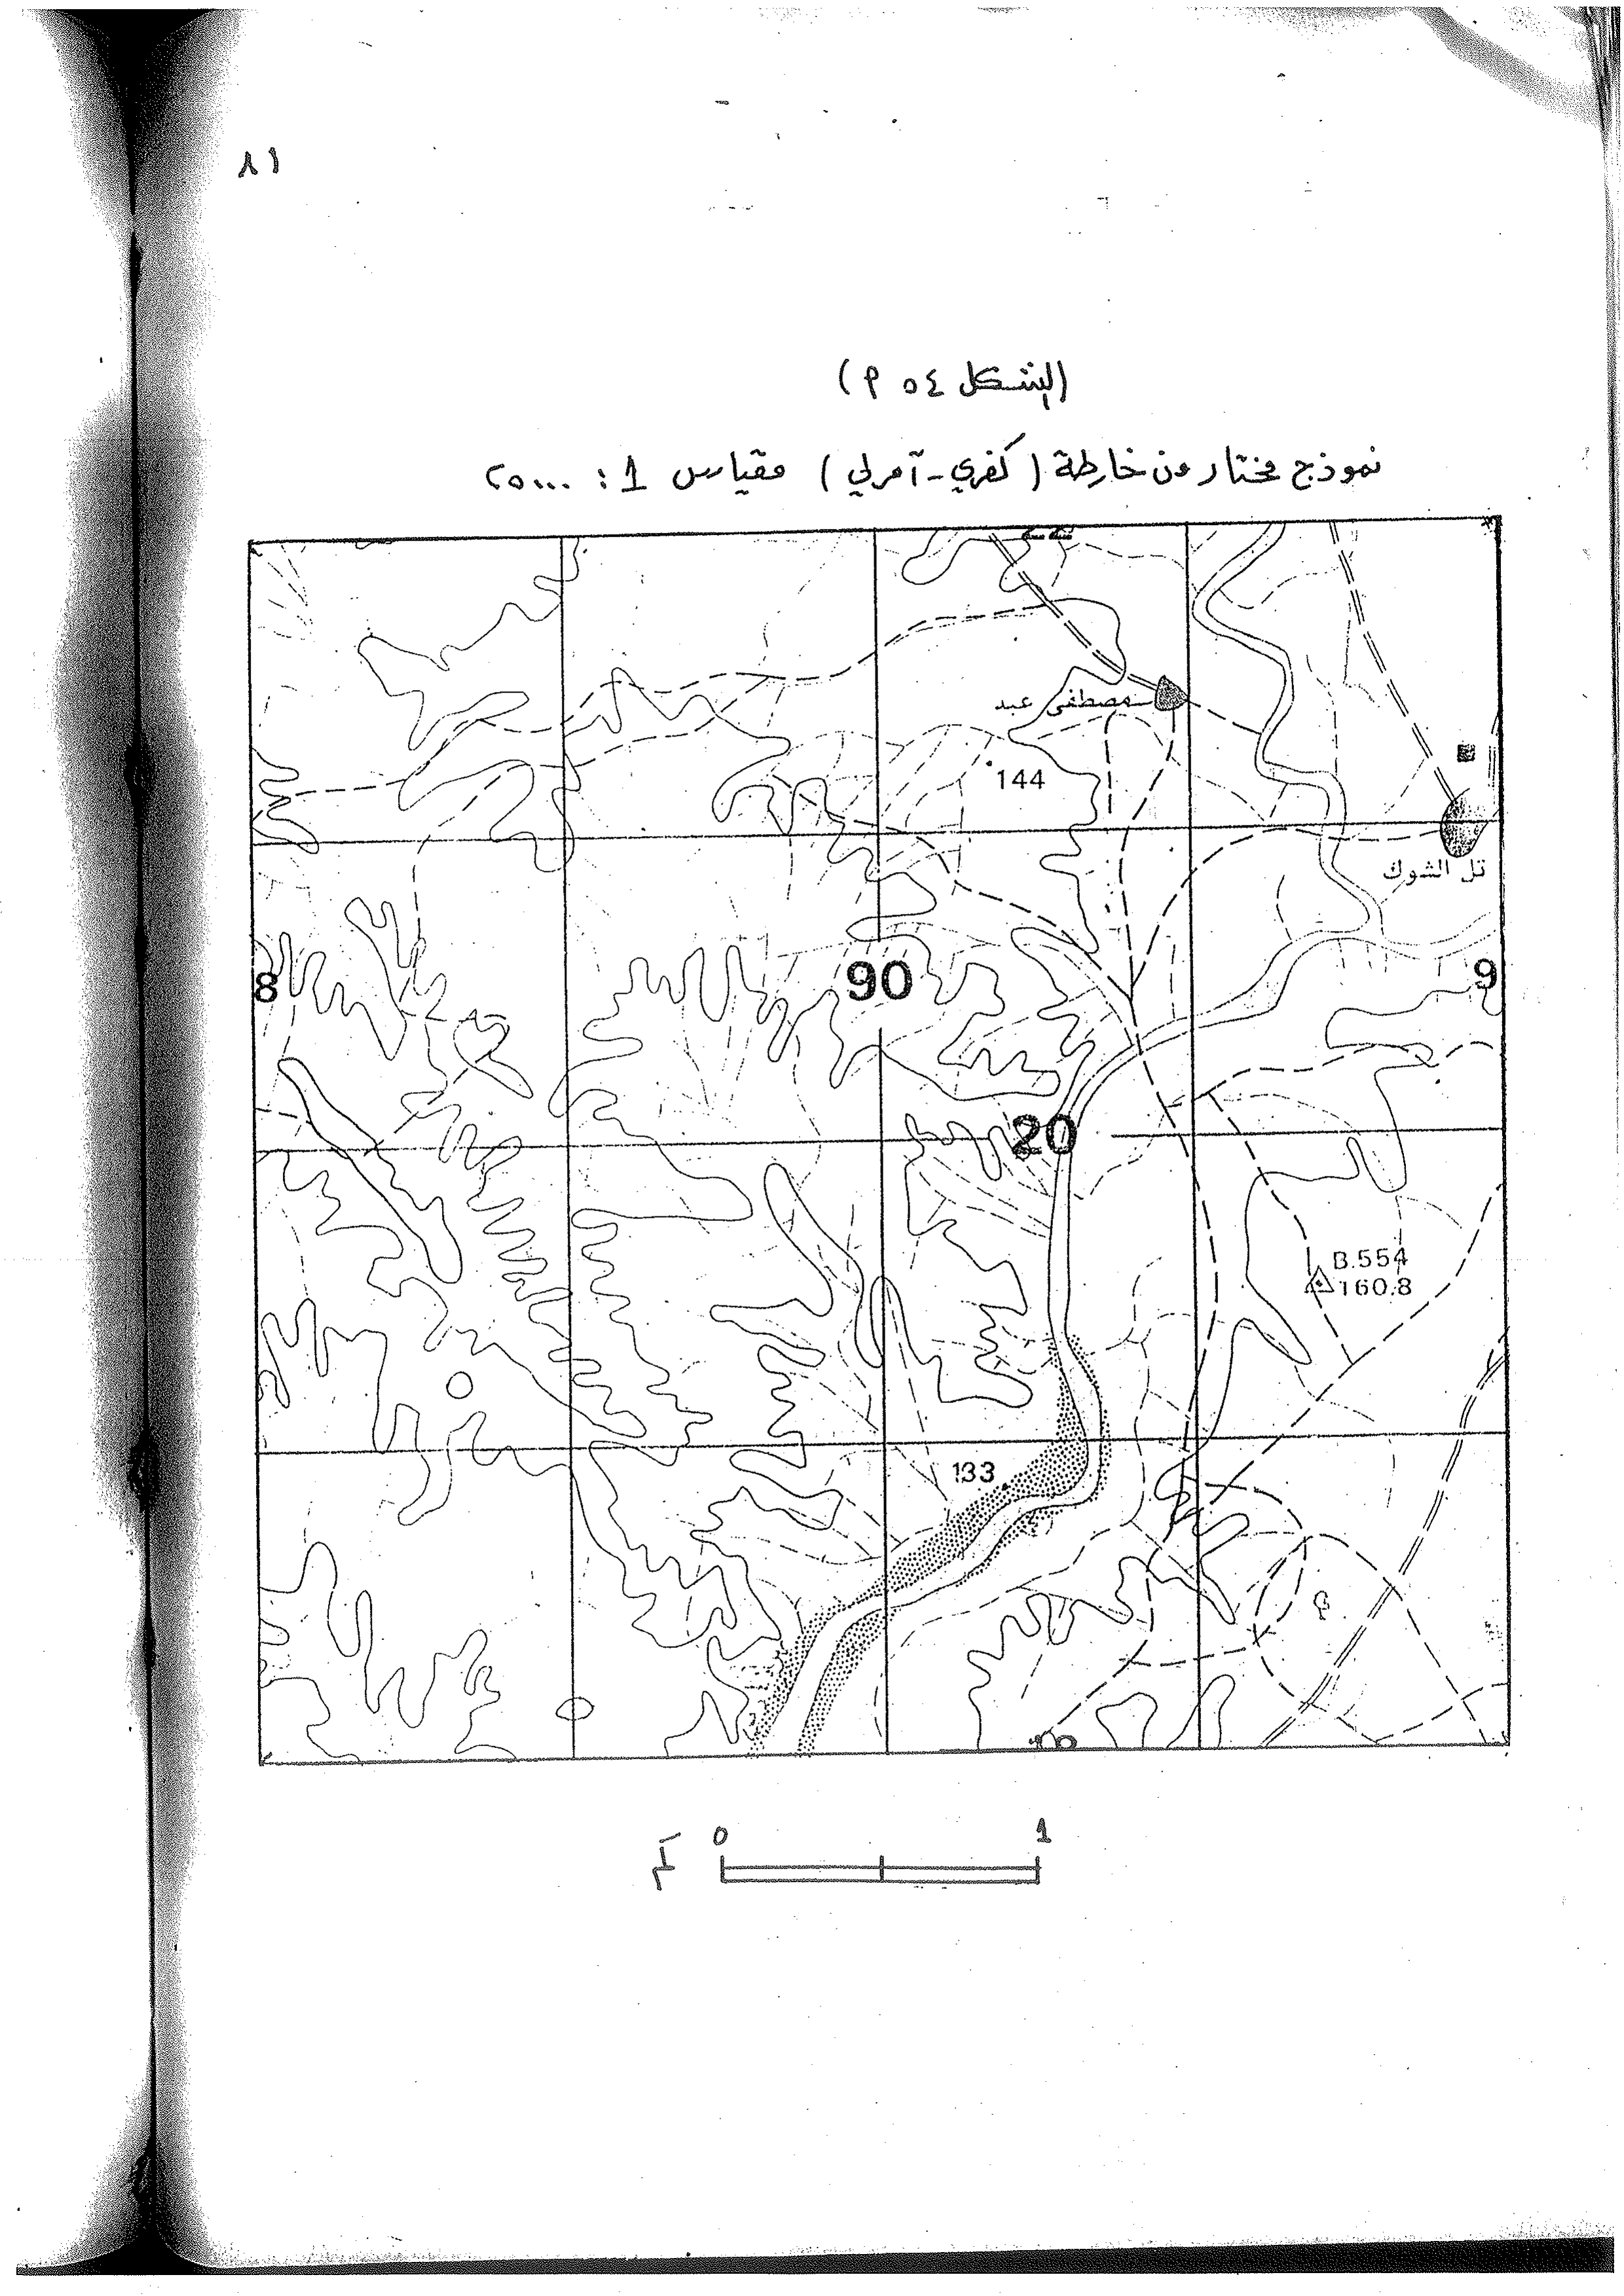 ٨١
(الشكل ٥٤ م)
نموذج مختار من خارطة (كفري-آمرلي) مقياس 1 : ٢٥٠٠٠
مصطفى عبد
144
تل الشوك
8
90
9
20
B.554
160.8
133
0 1
كم